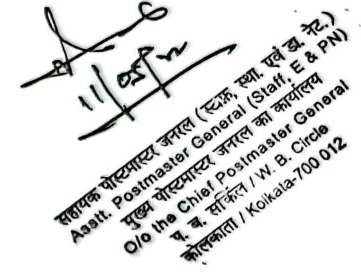 11/05/22
सहायक पोस्टमास्टर जनरल (स्टाफ़, स्था. एवं डा. नेट.)
Asstt. Postmaster General (Staff, E & PN)
मुख्य पोस्टमास्टर जनरल का कार्यालय
O/o the Chief Postmaster General
प. बं. सर्किल / W. B. Circle
कोलकाता / Kolkata-700 012